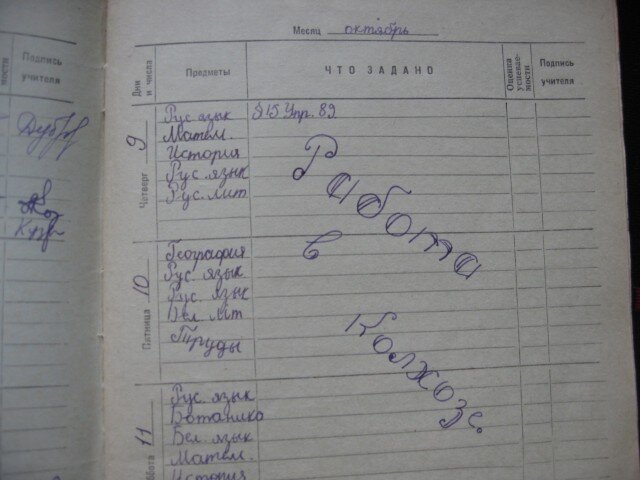 Подпись
учителя
Месяц октябрь
Дни
и числа
Предметы
ЧТО ЗАДАНО
Оценка
успевае-
мости
Подпись
учителя
Четверг 9
Рус. язык § 15 Упр. 89
Матем.
История
Рус. язык
Рус. лит
Работа
в
Колхозе.
Пятница 10
География
Рус. язык
Рус. язык
Бел. лит
Труды
11
Рус. язык
Ботаника
Бел. язык
Матем.
История